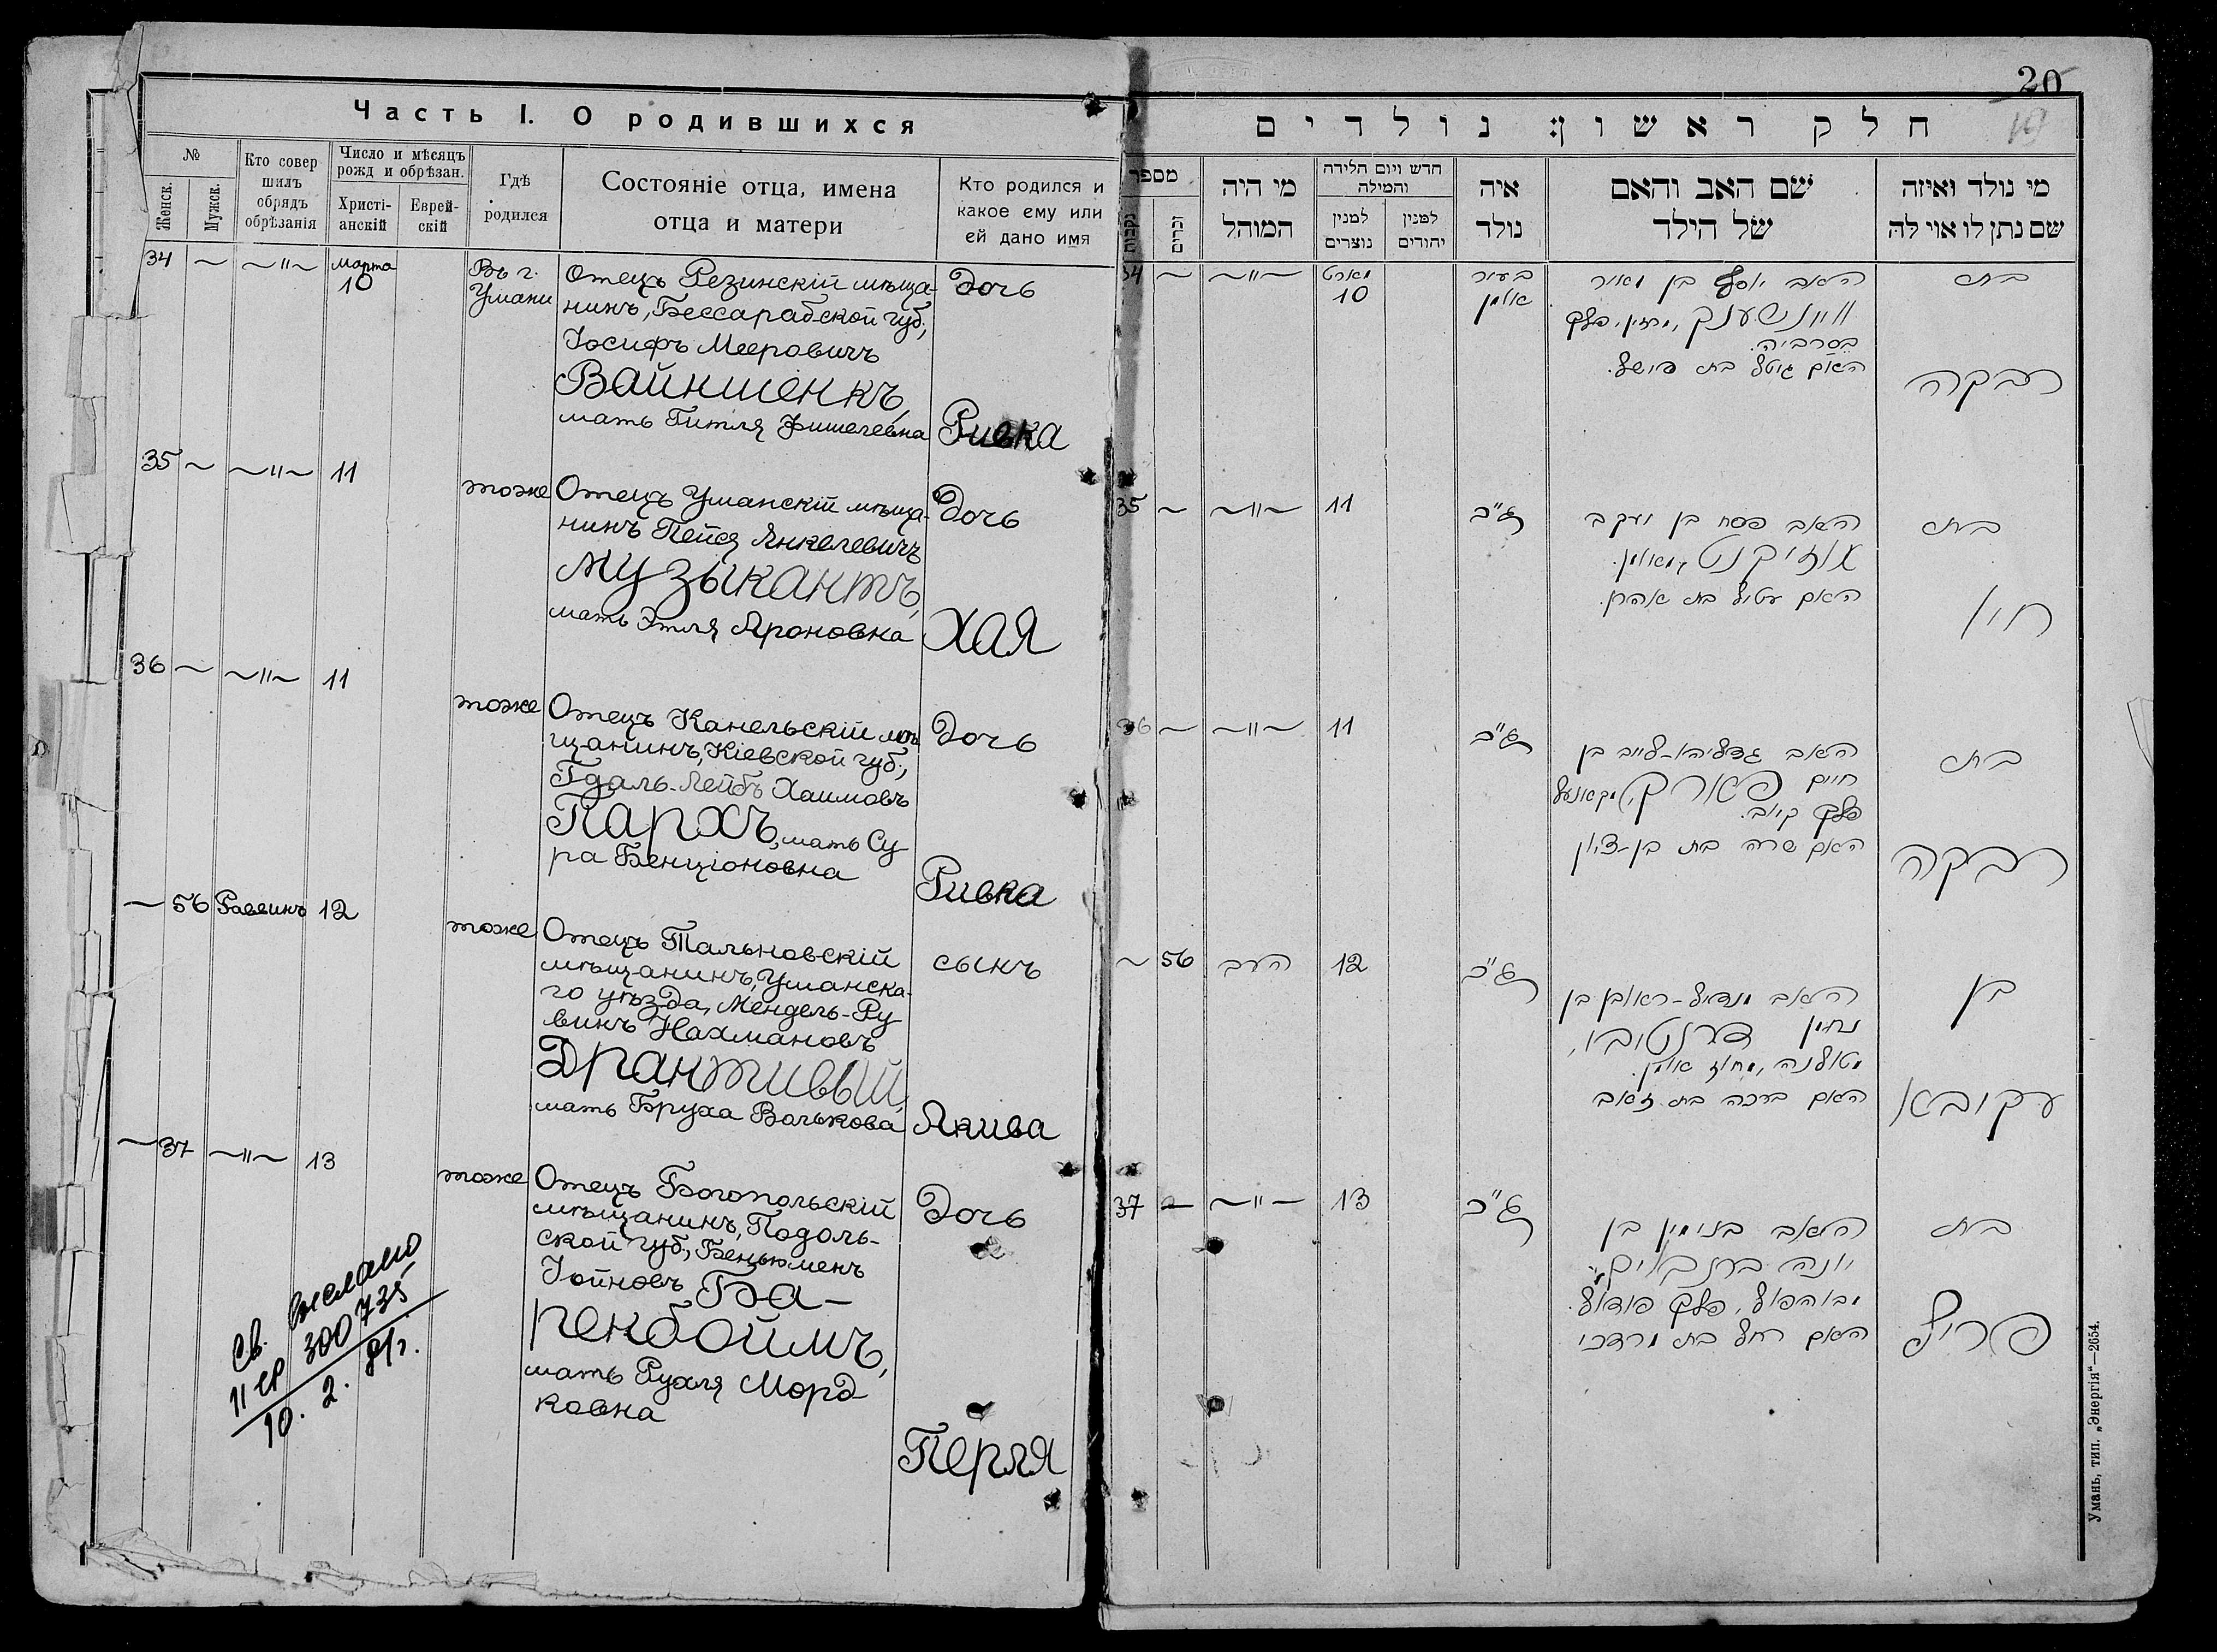 Часть I. О родившихся
№
Женск.
Мужск.
Кто совер
шилъ
обрядъ
обрѣзанія
Число и мѣсяцъ
рожд и обрѣзан.
Христі-
анскій
Еврей-
скій
Гдѣ
родился
Состояніе отца, имена
отца и матери
Кто родился и
какое ему или
ей дано имя
34 ~ ~"~ Марта
10
Въ г.
Умани
Отецъ Резинскій мѣща-
нинъ, Бессарабской губ.,
Іосифъ Мееровичъ
Вайншенкъ,
мать Гитля Фишелевна
Дочь
Ривка
35 ~ ~"~ 11
тоже
Отецъ Уманскій мѣща-
нинъ Пейся Янкелевичъ
Музыкантъ,
мать Этля Ароновна
Дочь
Хая
36 ~ ~"~ 11
тоже
Отецъ Канельскій мѣ
щанинъ, Кіевской губ.,
Гдаль-Лейбъ Хаимовъ
Пархъ, мать Су
ра Бенціоновна
Дочь
Ривка
~ 56 Раввинъ 12
тоже
Отецъ Тальновскій
мѣщанинъ, Уманска-
го уѣзда, Мендель-Ру
винъ Нахмановъ
Дрантивый,
мать Бруха Волькова
сынъ
Акива
~ 37 ~"~ 13
тоже
Отецъ Богопольскій
мѣщанинъ, Подоль-
ской губ., Беньюменъ
Іойновъ Ба-
ренбоймъ,
мать Рухля Морд
ковна
Дочь
Перля
Св.
II ЕР 300735
10. 2. 81г.
20
חלק ראשון: נולדים
מספר
נקבות
זכרים
מי היה
המוהל
חדש ויום הלידה
והמילה
למנין
נוצרים
למנין
יהודים
איה
נולד
שם האב והאם
של הילד
מי נולד ואיזה
שם נתן לו אוי לה
34 ~ ~"~ מארט
10
בעיר
אומן
האב יוסף בן מאיר
וויינשענק, מרזין, פלך
בסרביה.
האם גיטל בת פישל.
בת
רבקה
35 ~ ~"~ 11
האב פסח בן יעקב
מוזיקנט מאומן.
האם עטיל בת אהרן.
בת
חיי
36 ~ ~"~ 11
האב גדליהו-לייב בן
חיים פארק,
פלך קיוב.
האם שרה בת בן-ציון
בת
רבקה
~ 56 הרב 12
האב מנדיל-ראובן בן
נחמן
מטולנה, מחוז אומן.
האם ברכה בת זאב
בן
עקיבא
37 ~ ~"~ 13
האב בנימין בן
יונה
מבוהפולי, פלך פודול.
האם רחל בת מרדכי
בת
פריל
Умань, тип. „Энергія“—2654.